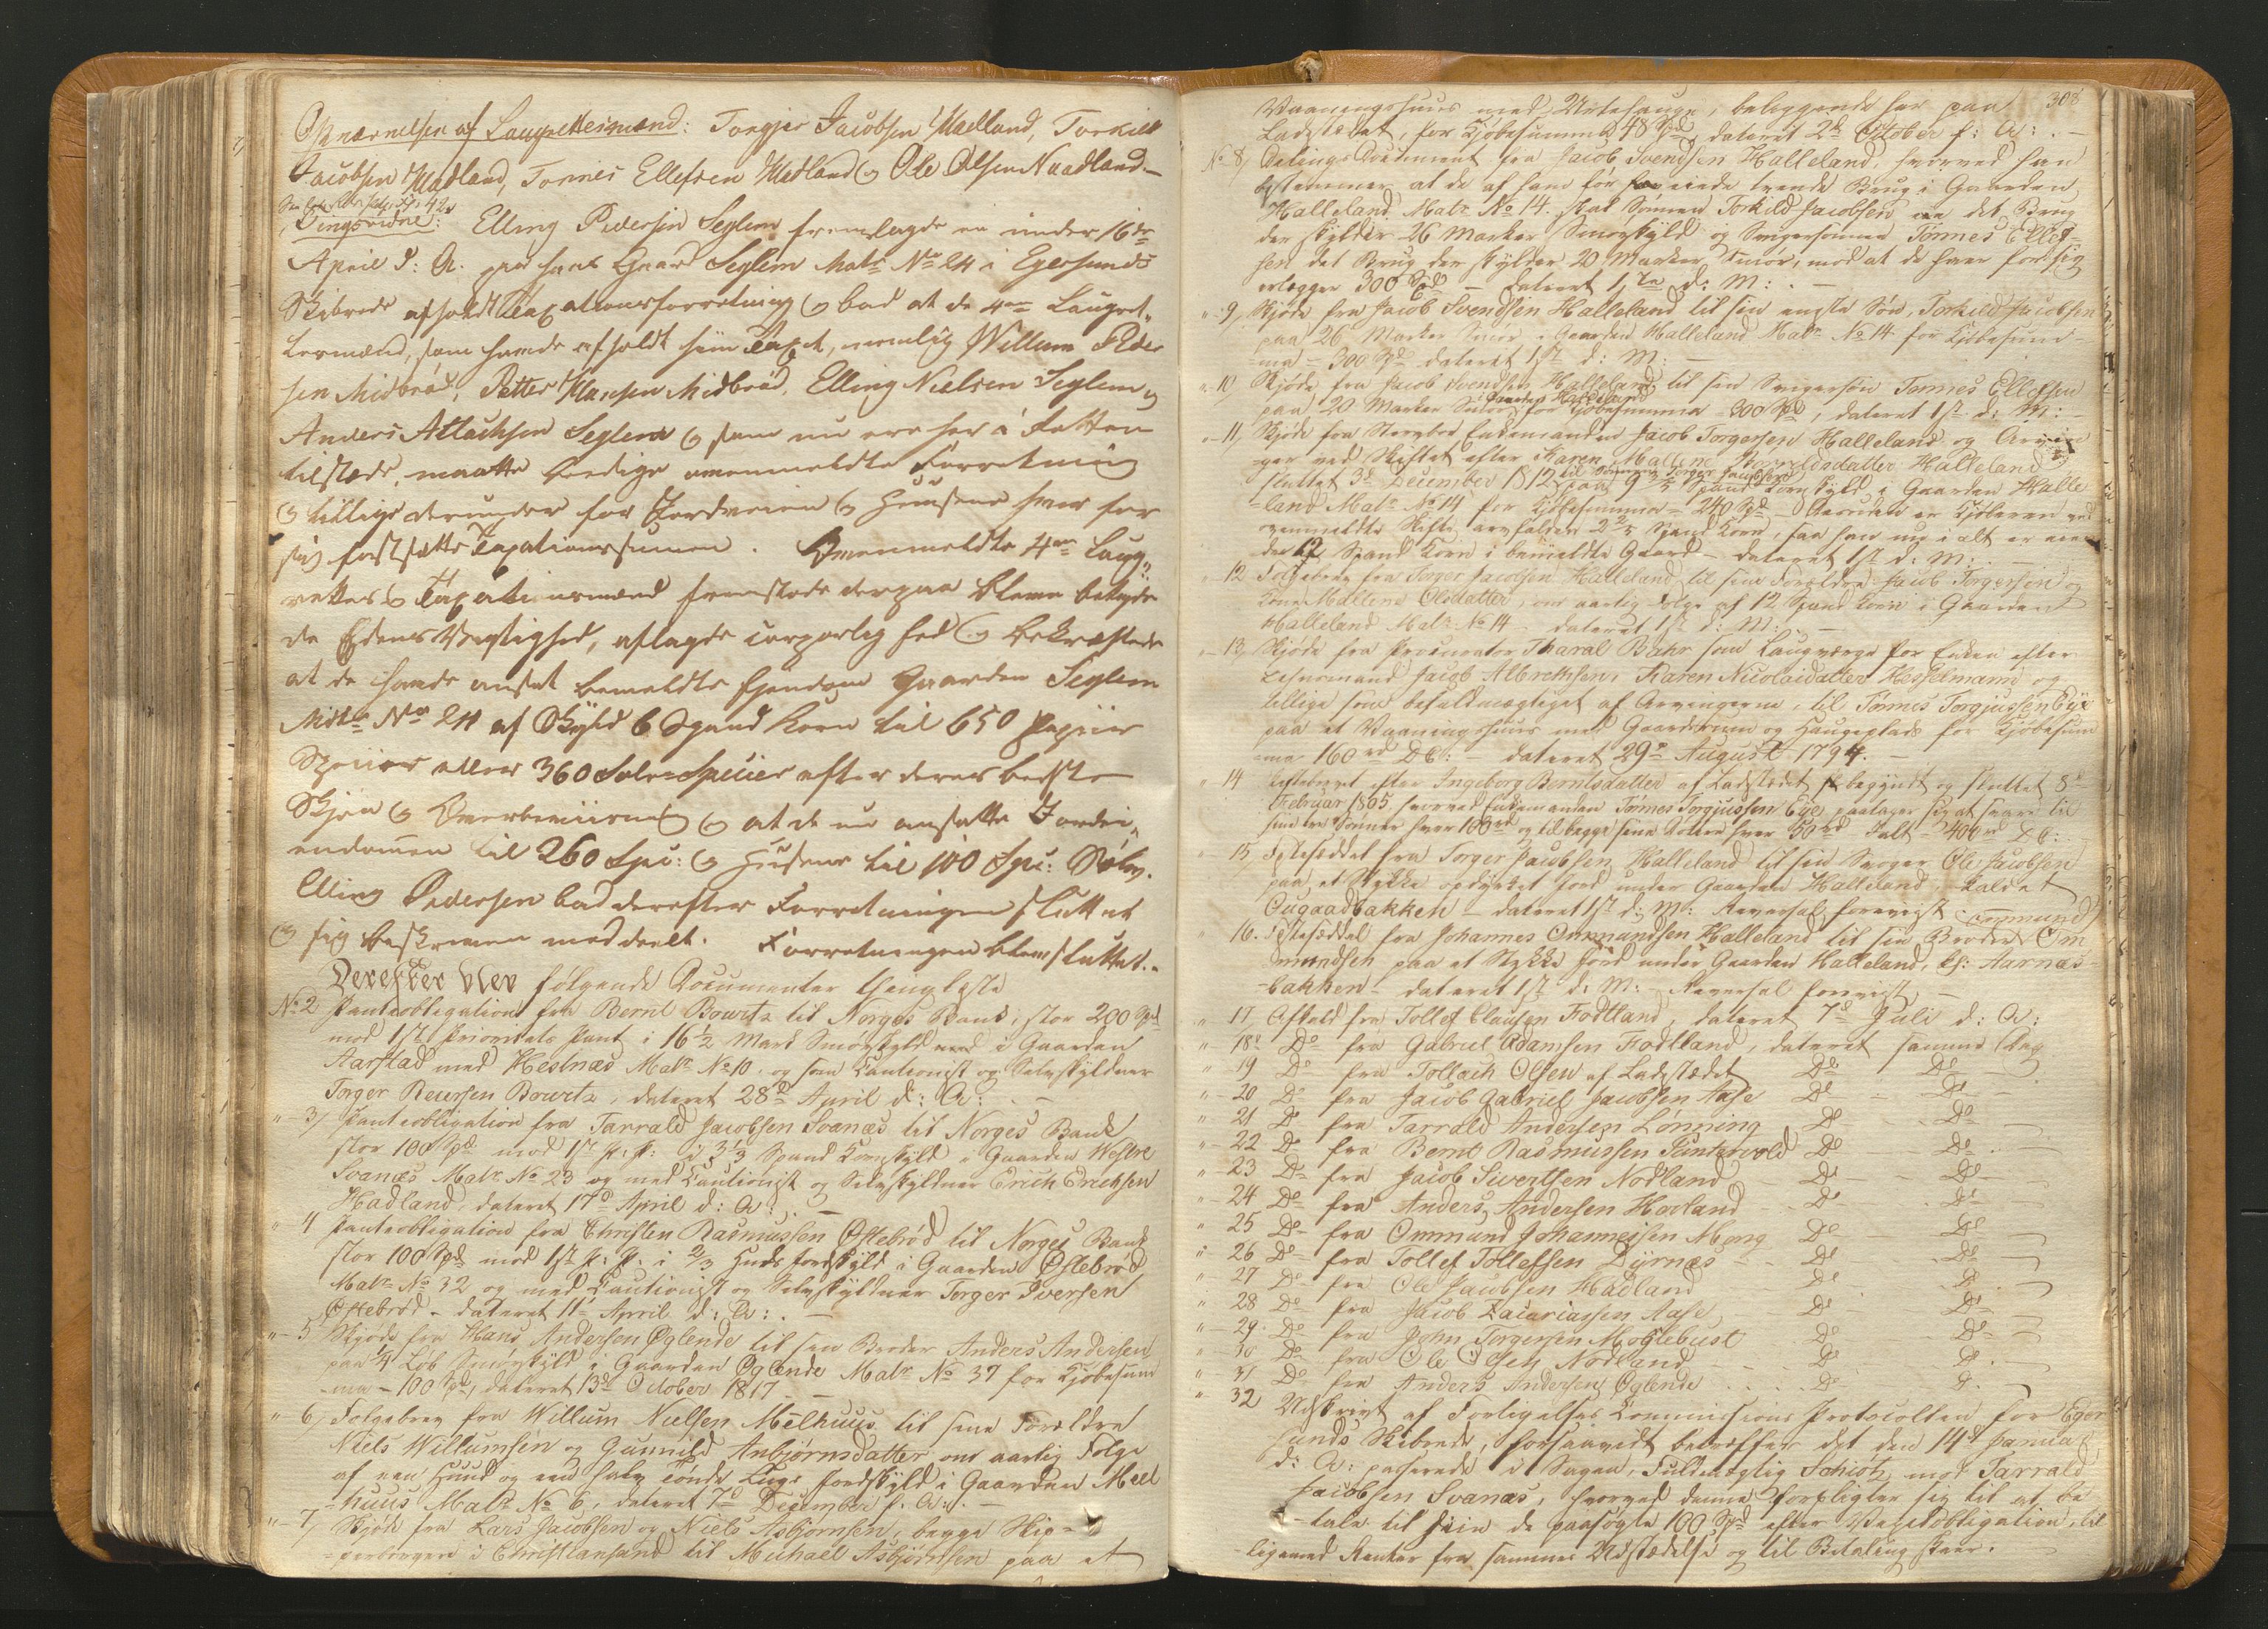 Opnævnelsen af Laugrettesmænd: Torgjer Jacobsen Madland, Torkild
Jacobsen Madland, Tonnes Ellefsen Madland og Ole Olsen Naadland.
Tingsvidne: Elling Pedersen Seglem fremlagde en under 16de
April d: A. paa hans Gaard Seglem Matr No 24 i Egersunds
Skibrede afholdt Taxationsforretning og bad at de 4re Laugret-
tesmænd, som havde afholdt sin Taxt, nemlig Willum Peder
sen Midbrød, Petter Hansen Midbrød, Elling Nielsen Seglem og
Anders Attachsen Seglem og som nu ere her i Retten
tilstæde, maatte beedige ommeldte Forretning
og tillige derunder for Jordveien og Huusene hver for
sig fastsætte Taxationssummen. Ommeldte 4re Laug-
rettes og Taxationsmænd fremstode derpaa bleve betyde
de Edens Vigtighed, aflagde corporlig Eed og bekræftede
at de havde ansat bemeldte Ejendom Gaarden Seglem
Matr No 24 af Skyld 6 Spand Korn til 650 Papiir
Species eller 360 Sølv-Species efter deres bedste
Skjøn og Overbeviisning og at de nu ansatte Jordei-
endommen til 260 Spe: og Husene til 100 Spe: Sølv.
Elling Pedersen bad derefter Forretningen sluttet
og sig beskreven meddeelt. Forretningen blev sluttet.
Derefter blev følgende Documenter thinglyste
No 2 Panteobligation fra Bernt Bowitz til Norges Bank, stor 200 Spd
mod 1ste Prioritets Pant i 16 1/2 Mark Smørskyld i Gaarden
Aarstad med Hestnæs Matr No 10, og som Cautionist og Selvskyldner
Torger Reiersen Bowitz, dateret 28de April d: A:
" 3, Panteobligation fra Tarrald Jacobsen Svanæs til Norges Bank
stor 100 Spd mod 1ste P: P: i 3 1/3 Spand Kornskyld i Gaarden Westre
Svanæs Matr No 23 og med Cautionist og Selvskyldner Erich Erichsen
Hadland, dateret 17de April d: A:
" 4 Panteobligation fra Christen Rasmussen Østebrød til Norges Bank
stor 100 Spd mod 1ste P: P: i 2/3 Huds Jordskyld i Gaarden Østebrød
Matr No 32 og med Cautionist og Selvskyldner Torger Iversen
Østebrød - dateret 11te April d: A:
" 5 Skjøde fra Hans Andersen Øglende til sin Broder Anders Andersen
paa 1/4 Løb Smørskyld i Gaarden Øglende Matr No 37 for Kjøbesum
ma - 100 Spd, dateret 13de October 1817
" 6, Folgebrev fra Willum Nielsen Mélhuus til sine Forældre
Niels Willumsen og Gunnild Anbjørnsdatter om aarlig Folge
af een Huud og een halv Tønde Lægs Jordskyld i Gaarden Meel
huus Matr No 6, dateret 7de December f. A:
" 7, Skjøde fra Lars Jacobsen og Niels Asbjørnsen, begge Skip-
perborgere i Christiansand til Michael Asbjørnsen paa et
308
Vaaningshuus med Urtehauge, beliggende her paa
Ladstædet, for Kjøbesumma 48 Spd, dateret 2de October f: A:
No 8, Delings Document fra Jacob Svendsen Halleland, hvorved han
bestemmer at de af ham før eiede tvende Brug i Gaarden
Halleland Matr No 14. skal Sønnen Torkild Jacobsen eie det Brug
der skylder 26 Marker Smørskyld og Svigersønnen Tønnes Ellef-
sen det Brug der skylder 20 Marker Smør, mod at de hver for sig
erlægger 300 Spd - dateret 1ste d: M:
" 9, Skjøde fra Jacob Svendsen Halleland til sin yngste Søn, Torkild Jacobsen
paa 26 Marker Smør i Gaarden Halleland Matr No 14 for Kjøbesum-
ma - 300 Spd dateret 1ste d: M:
" 10 Skjøde fra Jacob Svendsen Halleland til sin Svigersøn Tønnes Ellefsen
paa 20 Marker Smør i Gaarden Halleland for Kjøbesumma - 300 Spd, dateret 1ste d: M:
" 11, Skjøde fra Enkemanden Jacob Torgersen Halleland og Arvin
ger ved Skiftet efter Karen Malline Halleland
sluttet 3de December 1812 til Sønnen Torger Jacobsen paa 9 Spand Kornskyld i Gaarden Halle
land Matr No 14 for Kjøbesumma - 240 Spd - Desuden er Kjøberen ved
ommeldte Skifte arvfalden 2 Spand Korn, saa han nu i alt er eien
de 12 Spand Korn i bemeldte Gaard - dateret 1ste d: M:
" 12 Folgebrev fra Torger Jacobsen Halleland til sine Forældre Jacob Torgersen og
Kone Mallene Olsdatter, om aarlig Folge af 12 Spand Korn i Gaarden
Halleland Matr No 14 - dateret 1ste d: M:
" 13, Skjøde fra Procurator Tharal Bahr som Laugværge for Enken efter
Lehnsmand Jacob Albrethsen, Karen Nicolaidatter Hesselmann og
tillige som befuldmægtiget af Arvingerne, til Tønnes Torgjussen Eye
paa et Vaaningshuus med Gaardsrum og Haugeplads for Kjøbesum
ma 160 rd D C: - dateret 29de August 1794.
" 14 efter Ingeborg Berntsdatter af Ladstædet begyndt og sluttet 8de
Februar 1805, hvorved Enkemanden Tønnes Torgjussen Eye paatager sig at svare til
sine tre Sønner hver 100 rd og til begge sine Døttre hver 50 rd Ialt - 400 rd D C:
" 15, Festesæddel fra Torger Jacobsen Halleland til sin Svoger Ole Jacobsen
paa et Stykke opdyrket Jord under Gaarden Halleland, kaldet
Øugaadbakken - dateret 1ste d: M: Reversal foreviist
" 16. Festesæddel fra Johannes Ommundsen Halleland til sin Broder Ommund Om
mundsen paa et Stykke Jord under Gaarden Halleland, k: Aarnæs-
bakken - dateret 1ste d: M: - Reversal foreviist
" 17 Afkald fra Tollef Clausen Fodtland, dateret 7de Juli d: A:
" 18 Do fra Gabriel Adamsen Fodtland, dateret samme Dag
" 19 Do fra Tollach Olsen af Ladstædet Do Do
" 20 Do fra Jacob Gabriel Jacobsen Aase Do Do
" 21 Do fra Tarrald Andersen Lønning Do Do
" 22 Do fra Bernt Rasmussen Puntervold Do Do
" 23 Do fra Jacob Sivertsen Nodland Do Do
" 24 Do fra Anders Andersen Hovland Do Do
" 25 Do fra Ommund Johannessen Mong Do Do
" 26 Do fra Tollef Tollefsen Dyrnæs Do Do
" 27 Do fra Ole Jacobsen Hadland Do Do
" 28 Do fra Jacob Zacariassen Aase Do Do
" 29 Do fra John Torgersen Møglebust Do Do
" 30 Do fra Ole Olsen Nodland Do Do
" 31 Do fra Anders Andersen Øglende Do Do
" 32 Udskrivt af Forligelses Commissions Protocollen for Eger
sunds Skibrede, forsaavidt betræffer det den 14de Januar
d: A: passerede i Sagen, Fuldmægtig Schiøtz mod Tarrald
Jacobsen Svanæs, hvorved denne forpligter sig til at be
tale til hiin de paasøgte 100 Spd efter Vexelobligation, til
ligemed Renter fra sammes Udstædelse og til Betaling skeer.